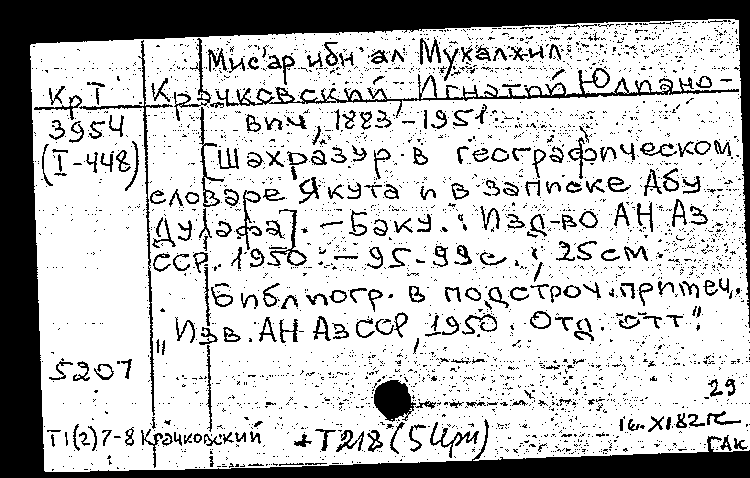 Мис'ар ибн ал Мухалхил
КрТ Крачковский, Игнатий Юлиано-
3954 вич, 1883-1951.
(I-448) [Шахразур в географическом
словаре Якута и в записке Абу
Дулафа]. - Баку.: Изд-во АН Аз
ССР. 1950. - 95-99с.; 25см.
Библиогр. в подстроч. примеч.
"Изв. АН АзССР, 1950. Отд. отт".
5207
29
16.XI82г
Т1(2)7-8 Крачковский +Т218 (5 Ири)
ГАК